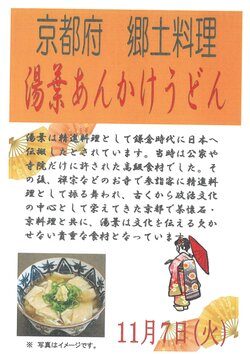 京都府　郷土料理
湯葉あんかけうどん
湯葉は精進料理として鎌倉時代に日本へ
伝搬したとされています。当時は公家や
寺院だけに許された高級食材でした。そ
の後、禅宗などのお寺で参詣客に精進料
理として振る舞われ、古くから政治文化
の中心として栄えてきた京都で茶懐石・
京料理と共に、湯葉は文化を伝える欠か
せない貴重な食材となっています。
※ 写真はイメージです。
11月7日(火)